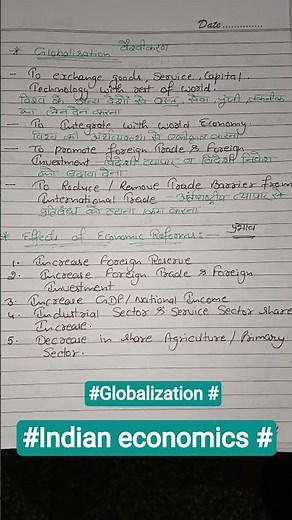 Date.............
* Globalisation वैश्वीकरण
- To exchange goods, Service, Capital
Technology with rest of world.
विश्व के अन्य देशों से वस्तु, सेवा, पूंजी, तकनीक
का लेन देन करना
- To Integrate with world Economy
विश्व की अर्थव्यवस्था से एकीकृत करना
- To promote foreign Trade & Foreign
Investment विदेशी व्यापार व विदेशी निवेश
को बढ़ावा देना
- To Reduce / Remove Trade Barrier from
International Trade अंतर्राष्ट्रीय व्यापार से
प्रतिबंध को हटाना / कम करना
* Effects of Economic Reforms:- प्रभाव
1. Increase Foreign Reserve
2. Increase Foreign Trade & Foreign
Investment
3. Increase GDP / National Income
4. Industrial Sector & Service Sector share
Increase.
5. Decrease in share Agriculture / Primary
Sector.
#Globalization #
#Indian economics #